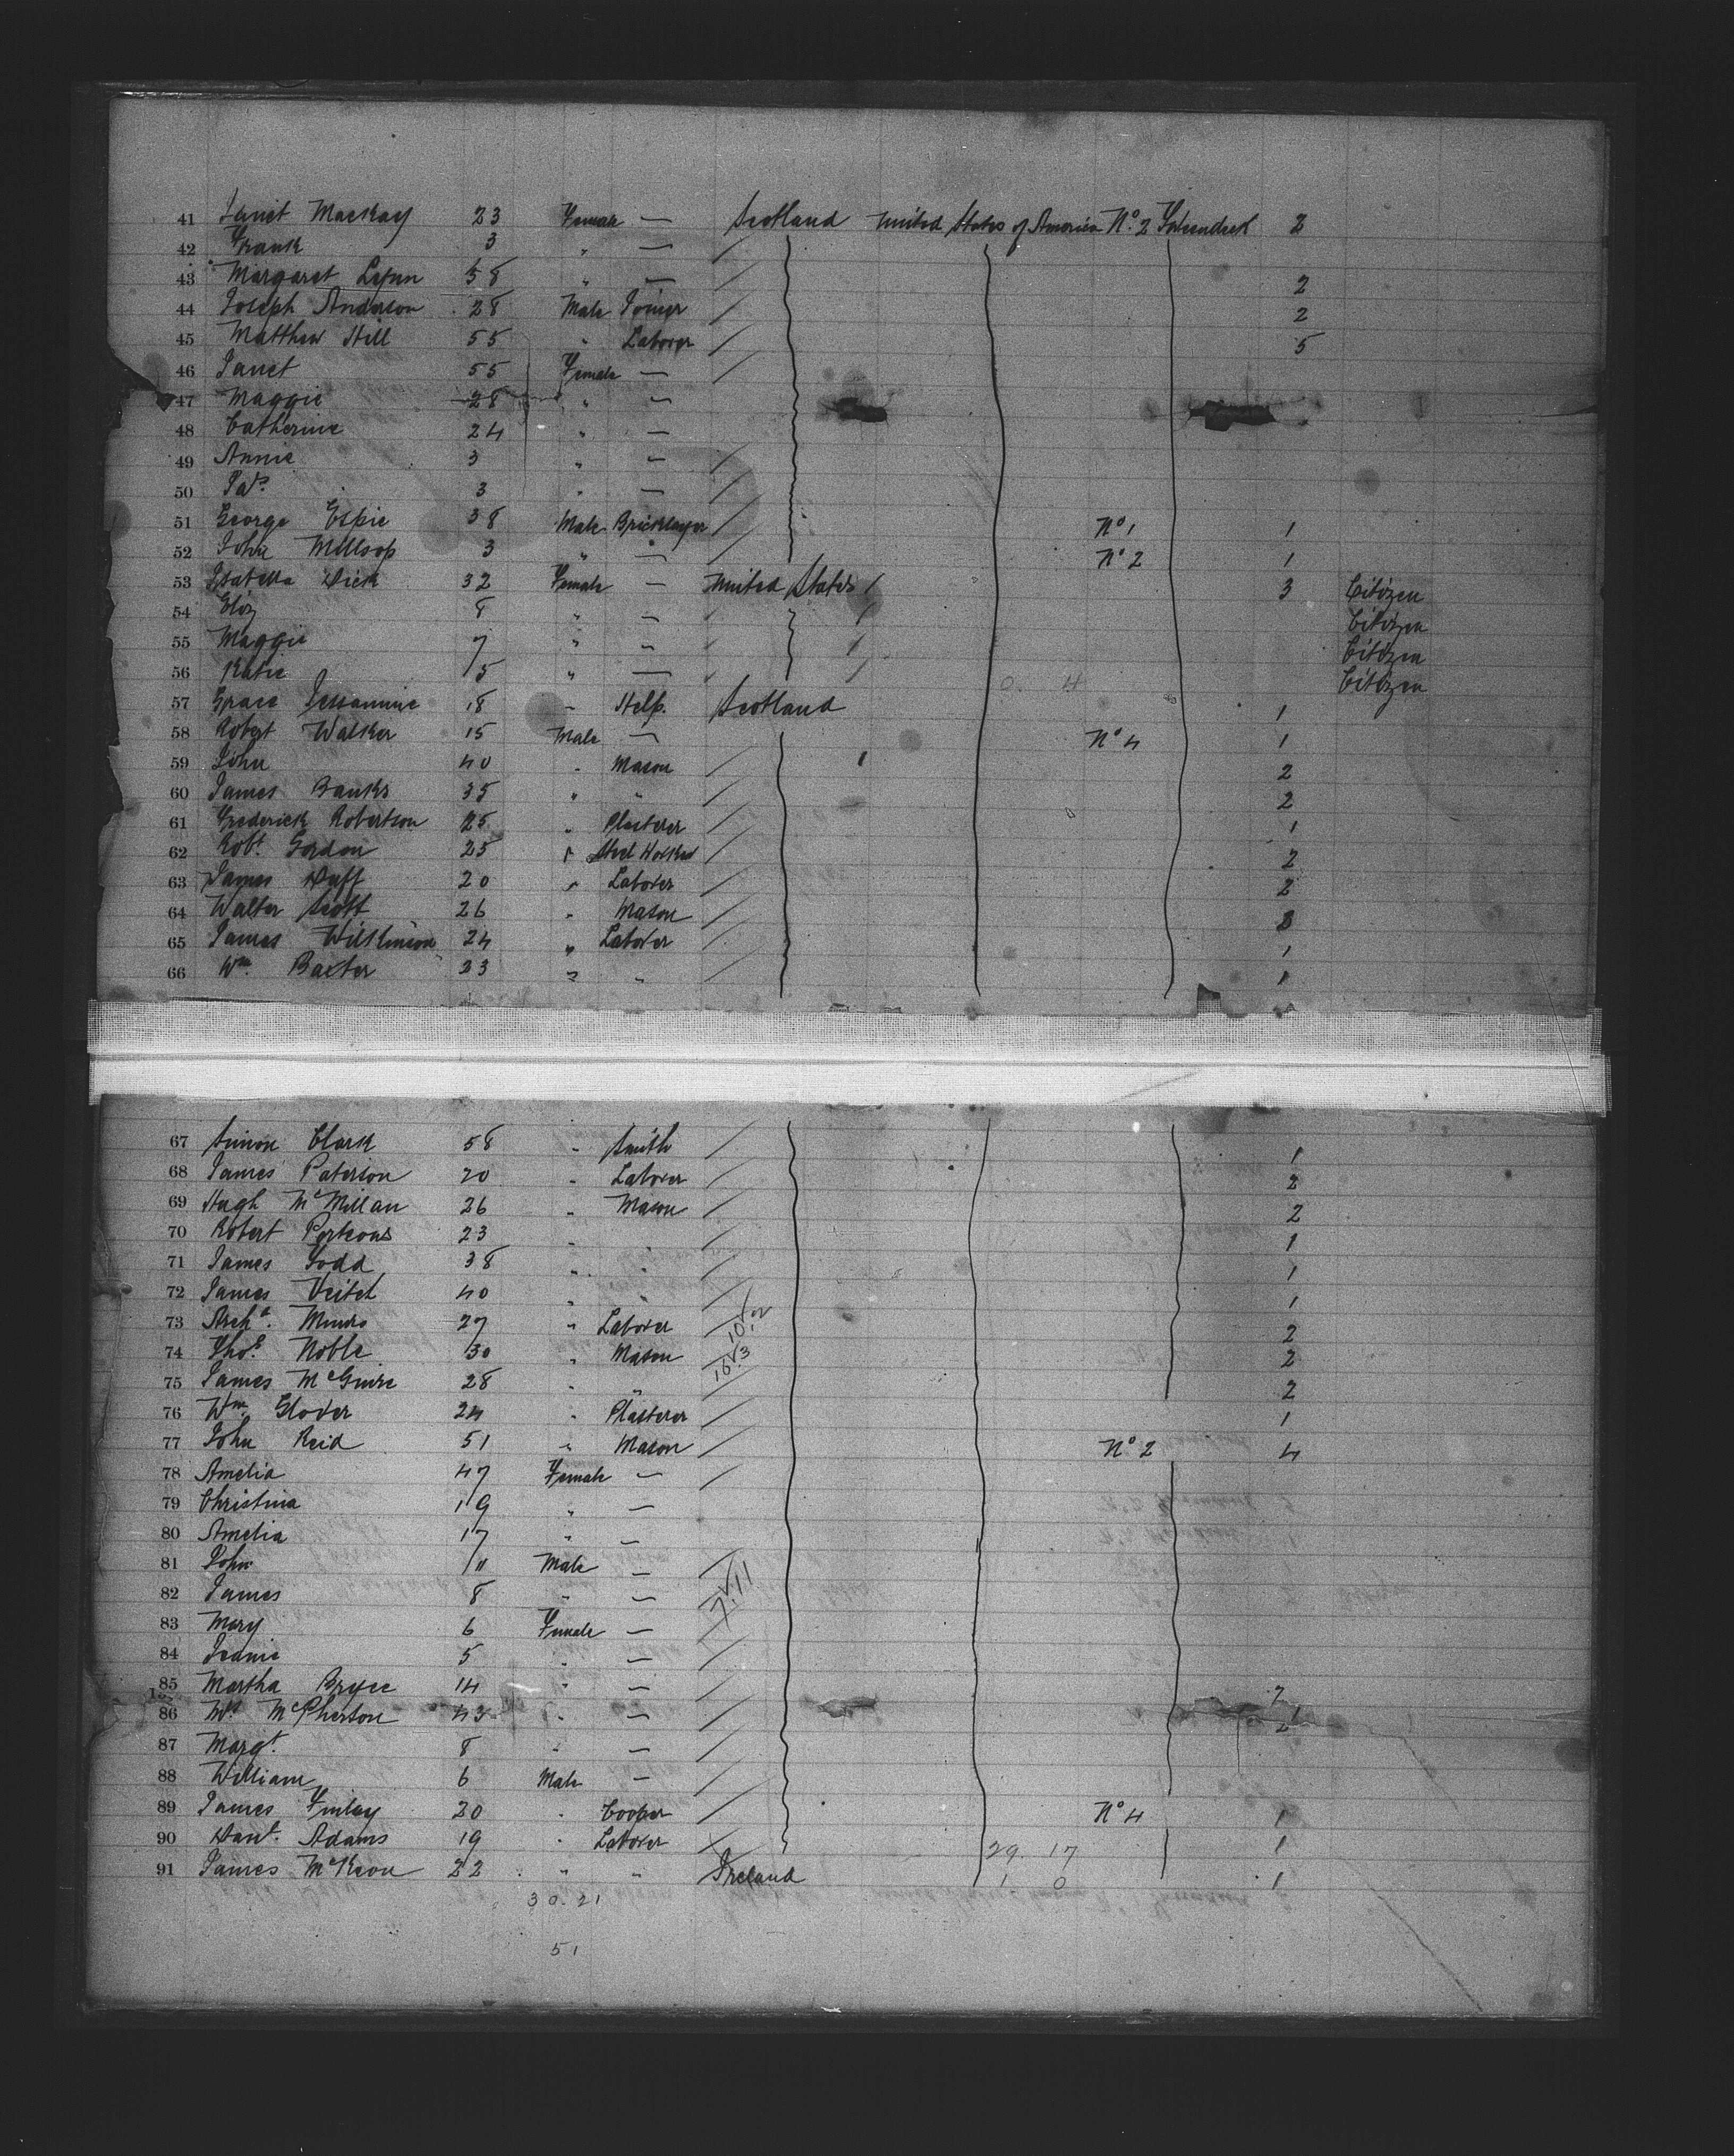 41 Janet Mackay 23 Female — Scotland United States of America No. 2 Tweendeck 2
42 Frank 3 " —
43 Margaret Lynn 58 " — 2
44 Joseph Anderson 28 Male Joiner 2
45 Matthew Hill 55 " Laborer 5
46 Janet 55 Female —
47 Maggie 28 " —
48 Catherine 24 " —
49 Annie 3 " —
50 3 " —
51 George Espie 38 Male Bricklayer No 1 1
52 John Millsop 3 " — No 2 1
53 Isabella Dick 32 Female — United States 3 Citizen
54 Eliz 8 " — Citizen
55 Maggie 7 " — Citizen
56 Katie 5 " — Citizen
0. 4
57 Grace Jessamine 18 " Help. Scotland 1
58 Robert Walker 15 Male — No 4 1
59 John 40 " Mason 2
60 James Banks 35 " " 2
61 Frederick Robertson 25 " Plasterer 1
62 Robt. Gordon 25 " Steel Worker 2
63 James Duff 20 " Laborer 2
64 Walter Scott 26 " Mason 3
65 James Wilkinson 24 " Laborer 1
66 Wm. Baxter 23 " " 1
67 Simon Clark 58 " Smith 1
68 James Paterson 20 " Laborer 2
69 Hugh McMillan 26 " Mason 2
70 Robert Porteous 23 " " 1
71 James Todd 38 " " 1
72 James Veitch 40 " " 1
73 Archd. Munro 27 " Laborer 2
74 Thos. Noble 30 " Mason 2
75 James McGuire 28 " " 2
76 Wm. Glover 24 " Plasterer 1
77 John Reid 51 " Mason No 2 4
78 Amelia 47 Female —
79 Christina 19 " —
80 Amelia 17 " —
81 John 11 Male —
82 James 8 " —
83 Mary 6 Female —
84 Jeanie 5 " —
85 Martha Bryce 14 " —
86 McPherson 43 " — 2
87 Margt. 8 " —
88 William 6 Male —
89 James Finlay 20 " Cooper No 4 1
90 Adams 19 " Laborer 29. 17 1
91 James McKeon 22 " " Ireland 1 0 1
30. 21
51